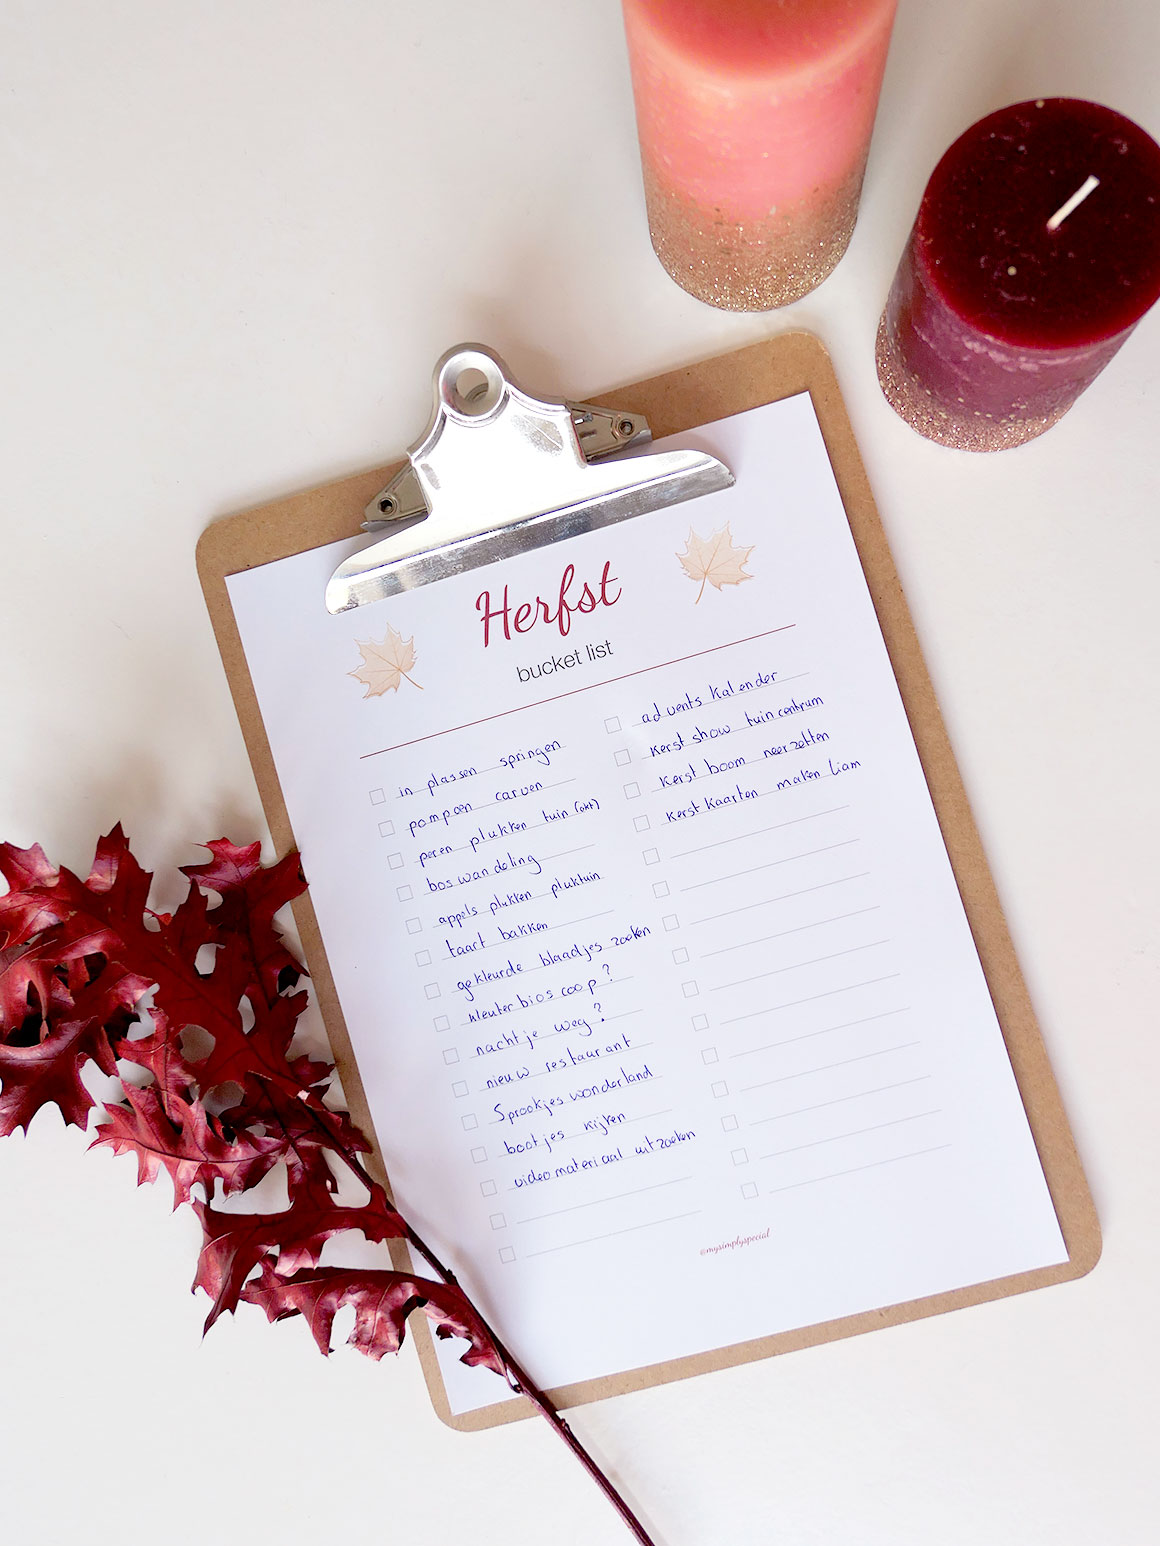 Herfst
bucket list
in plassen springen
pompoen carven
peren plukken tuin (okt)
boswandeling
appels plukken pluktuin
taart bakken
gekleurde blaadjes zoeken
kleuterbioscoop?
nachtje weg?
nieuw restaurant
Sprookjeswonderland
bootjes kijken
videomateriaal uitzoeken
advents kalender
kerstshow tuincentrum
kerst boom neerzetten
kerstkaarten maken Liam
@mysimplyspecial